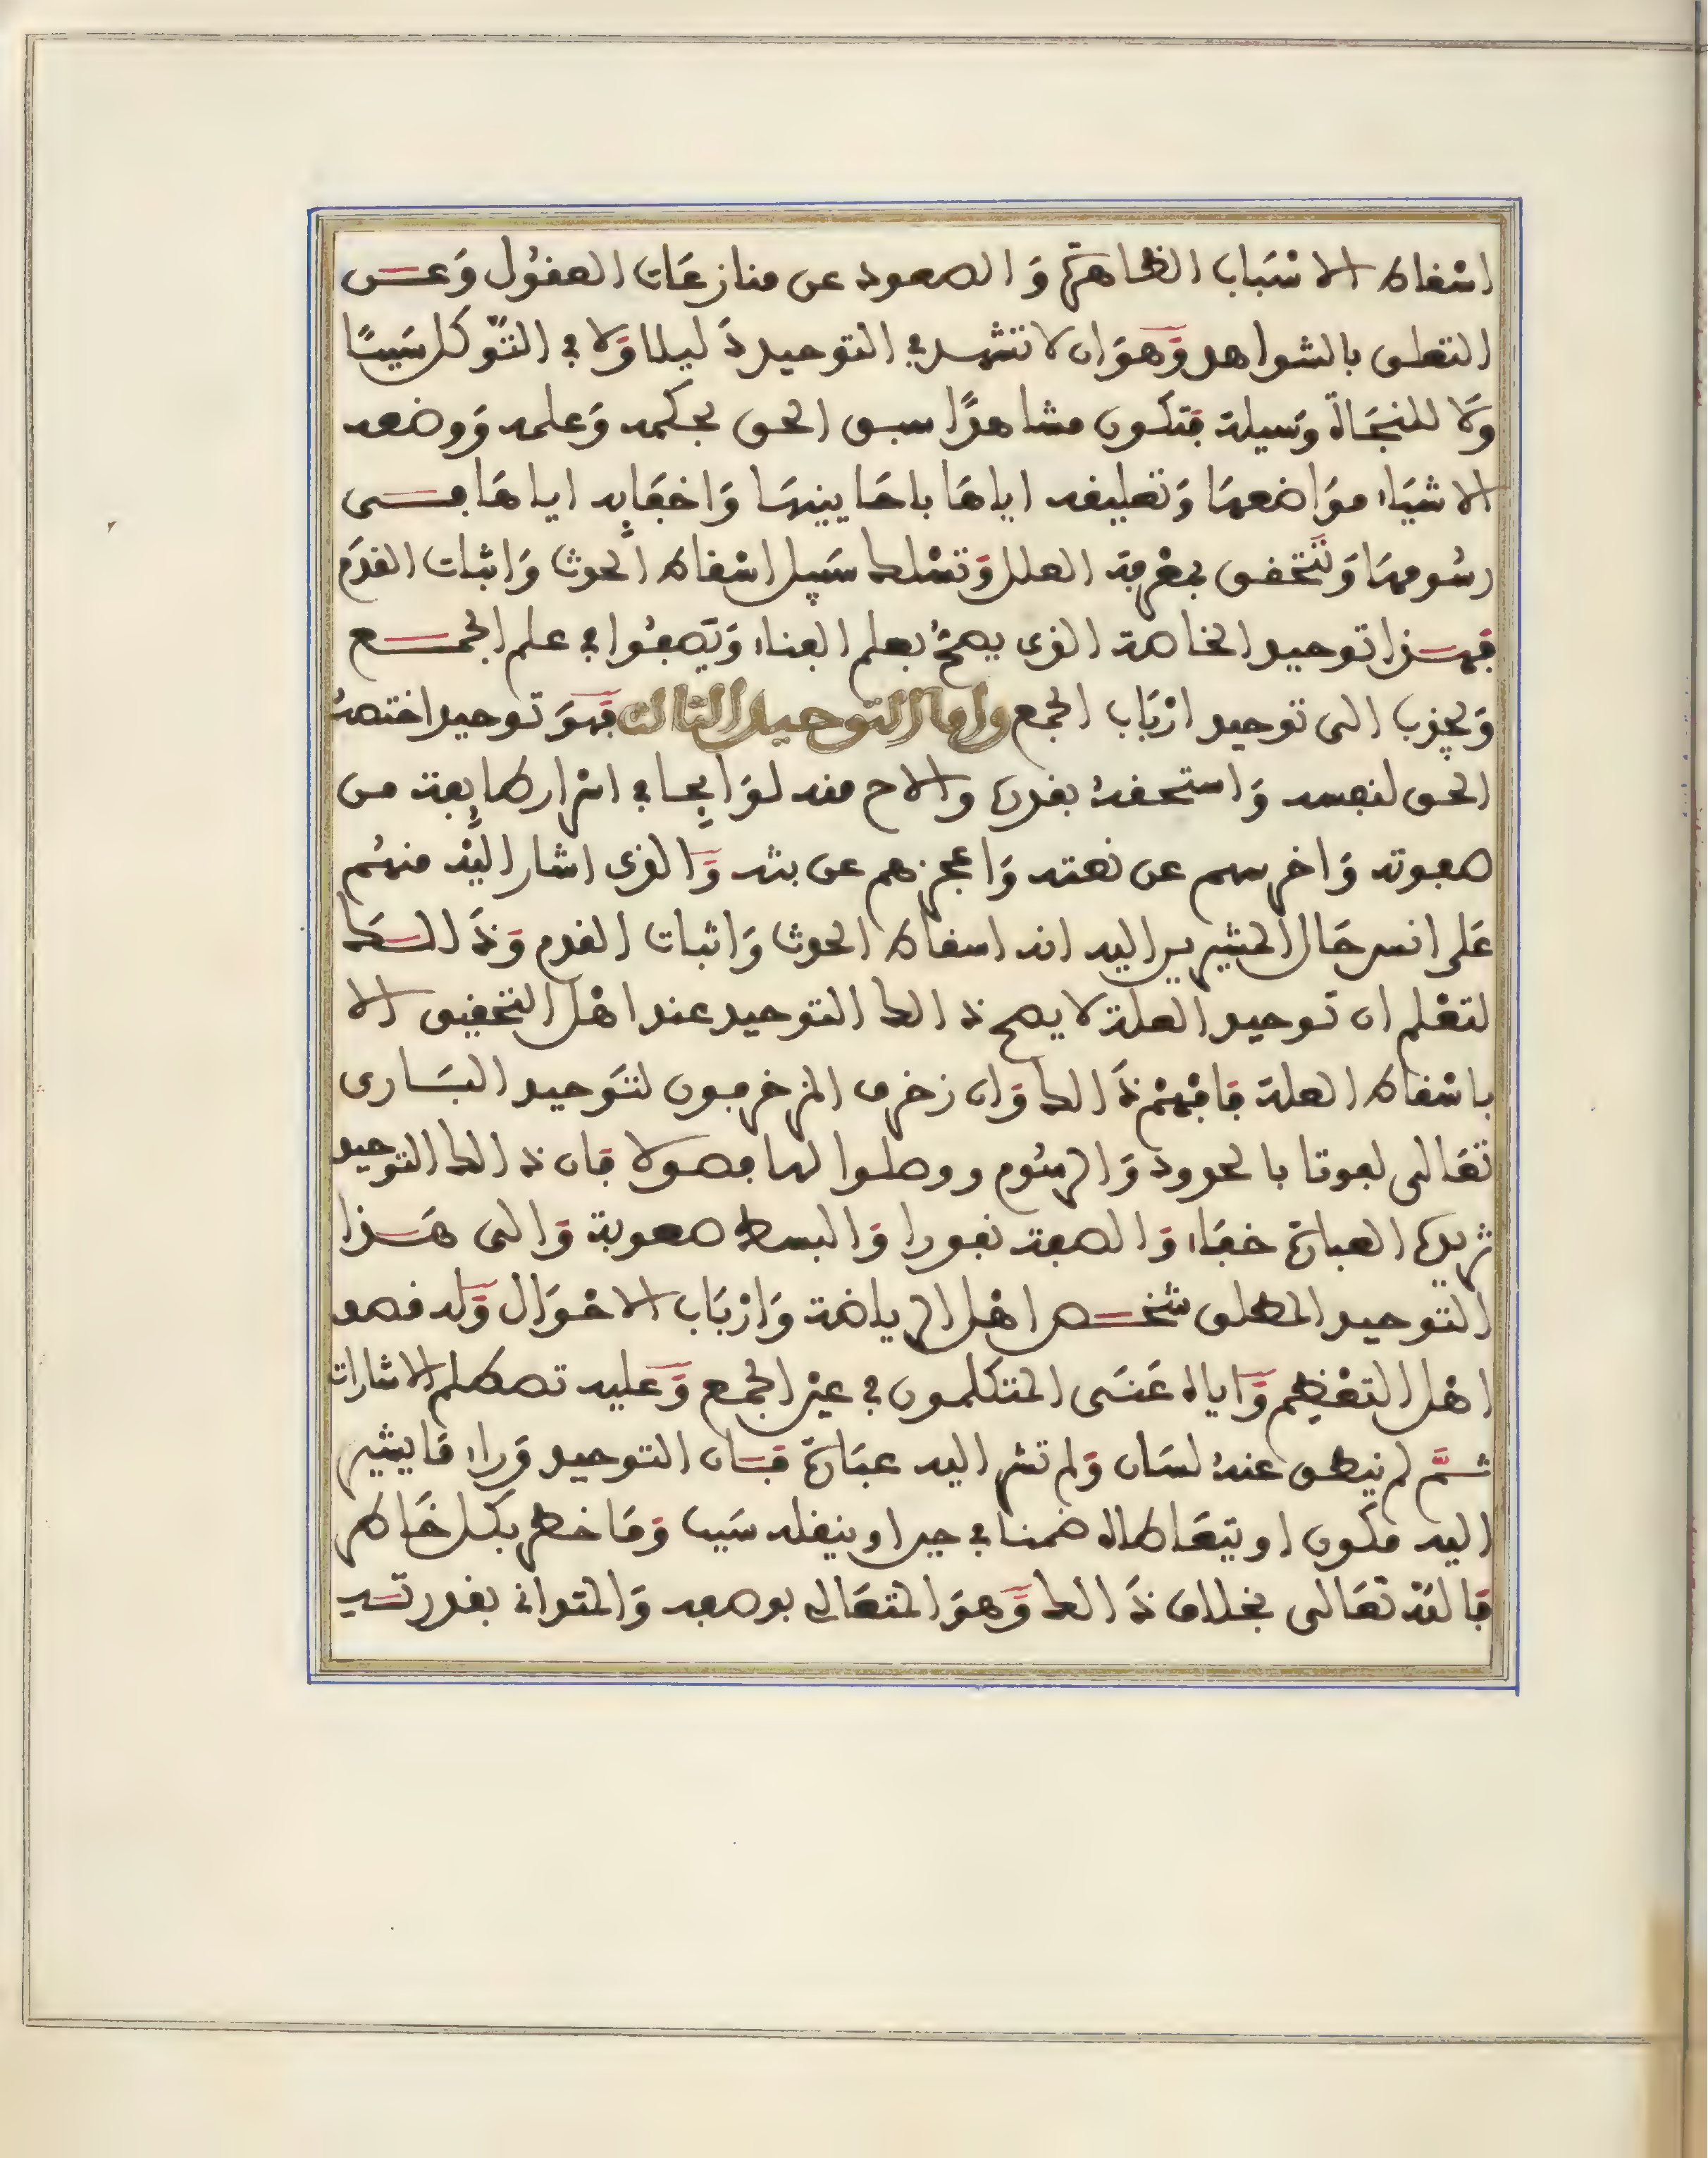 اسْقاط الاسْبَاب الظاهرَة وَالصعود عن منازعَات العقُول وَعن
التعلق بالشواهد وَهوَ ان لا تشهد في التوحيد دَليلا وَلا في التّوكل سَببًا
وَلا للنجَاة وَسيلة فتكون مشاهدًا سبق الحق بحكمه وَعلمه وَوضعه
الاشيَاء موَاضعهَا وَتعليقه اياهَا باحَايينهَا وَاخفَايِه اياهَا في
رسُومهَا وَتتحَقق بمعْرفة العلل وَتسْلك سَبيل اسْقاط الحدث وَاثبات القدَم
فهذا توحيد الخاصة الذى يصحُّ بعلم الفناء وَيَصفُوا في علم الجمع
وَيجذب الى توحيد ارْبَاب الجمع واما التوحيد الثالث فهوَ توحيد اختصهُ
الحق لنفسه وَاستحقهُ بقدره والاح منه لوَايِحا في اسْرار طايِفة من
صفوته وَاخرسهم عن نعته وَاعجزهم عن بثه وَالذى اشار اليْه منهُم
عَلى السر حَال المشيرين اليه انه اسقاط الحدث وَاثبات القدم وَذَالك
لتعْلم ان توحيد العلة لا يصح ذالك التوحيد عند اهْل التحقيق الا
باسْقاط العلة فافهَمْ ذَالك وَان زخرف المزخرفون لتوَحيد البَارى
تعَالى لعوتا بالحدود وَالرسُوم ووصلوا لها فصولا فان ذالك التوحيد
تزيده العبارَة خفَاء وَالصفة نفورا وَالبسط صعوبة وَالى هَذا
التوحيد المطلق شخص اهْل الرياضة وَارْبَاب الاحْوَال وَله قصد
اهْل التعْظيم وَاياه عَنَى المتكلمون في عيْن الجمع وَعليه تصطلم الاشارات
ثمَّ لم ينطق عنهُ لسَان وَلم تشر اليه عبَارَة فان التوحيد وَراء مَا يشير
اليه مكَون او يتعَاطاه ضمنا في حين او ينقله سَبب وَمَا خطر بكل خَاطر
فاللهْ تعَالى بخلاف ذَالك وَهوَ المتعَالى بوصفه وَالمتوانى بقدرته